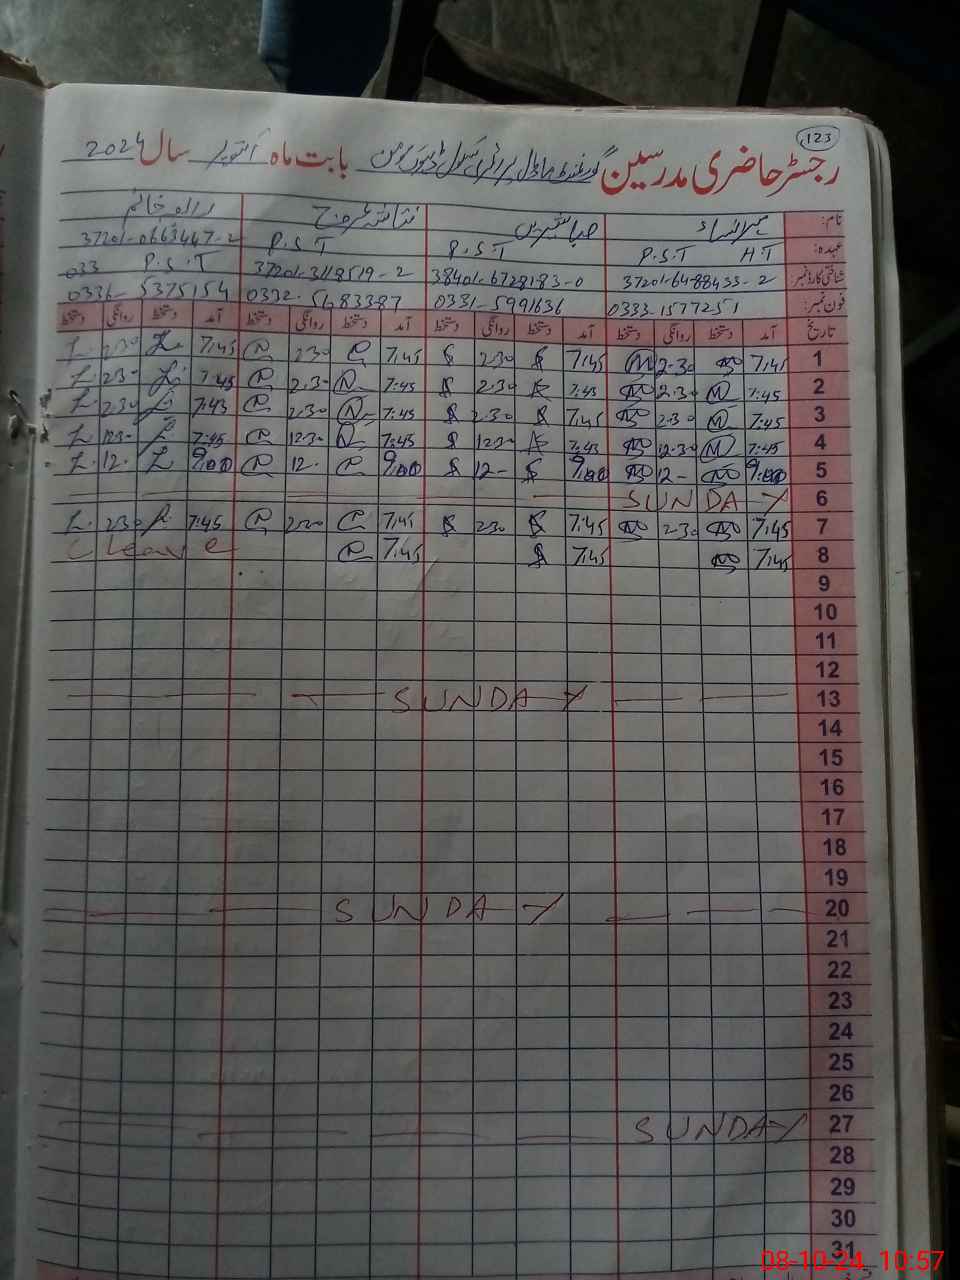 123
رجسٹر حاضری مدرسین گورنمنٹ ماڈل پرائمری سکول بابت ماہ اکتوبر سال 2024
نام:
عہدہ: H.T P.S.T P.S.T P.S.T 37201-0663447-2
شناختی کارڈ نمبر: 37201-6488433-2 38401-6728183-0 37201-3118519-2 P.S.T 033
فون نمبر: 0333-1577251 0331-5991636 0332-5683387 0336-5375154
تاریخ آمد دستخط روانگی دستخط آمد دستخط روانگی دستخط آمد دستخط روانگی دستخط آمد دستخط روانگی دستخط
1 7:45 2.30 7:45 2.30 7:45 2.30 7:45 2.30
2 7:45 2.30 7:45 2.30 7:45 2.30 7:45 2.30
3 7:45 2.30 7:45 2.30 7:45 2.30 7:45 2.30
4 7:45 12.30 7:45 12.30 7:45 12.30 7:45 12.30
5 9:00 12- 9:00 12- 9:00 12. 9:00 12.
6 SUNDAY
7 7:45 2.30 7:45 2.30 7:45 2.30 7:45 2.30
8 7:45 7:45 7:45 C Leave
9
10
11
12
13 SUNDAY
14
15
16
17
18
19
20 SUNDAY
21
22
23
24
25
26
27 SUNDAY
28
29
30
31
08-10-24 10:57